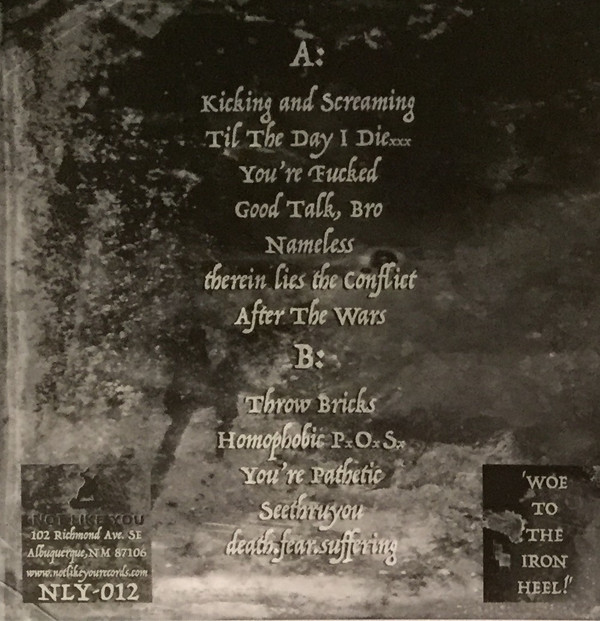 A:
Kicking and Screaming
Til The Day I Diexxx
You're Fucked
Good Talk, Bro
Nameless
therein lies the Conflict
After The Wars
B:
Throw Bricks
Homophobic PxOxSx
You're Pathetic
Seethruyou
death.fear.suffering
NOT LIKE YOU
102 Richmond Ave. SE
Albuquerque, NM 87106
www.notlikeyourecords.com
NLY-012
'WOE
TO
THE
IRON
HEEL!'